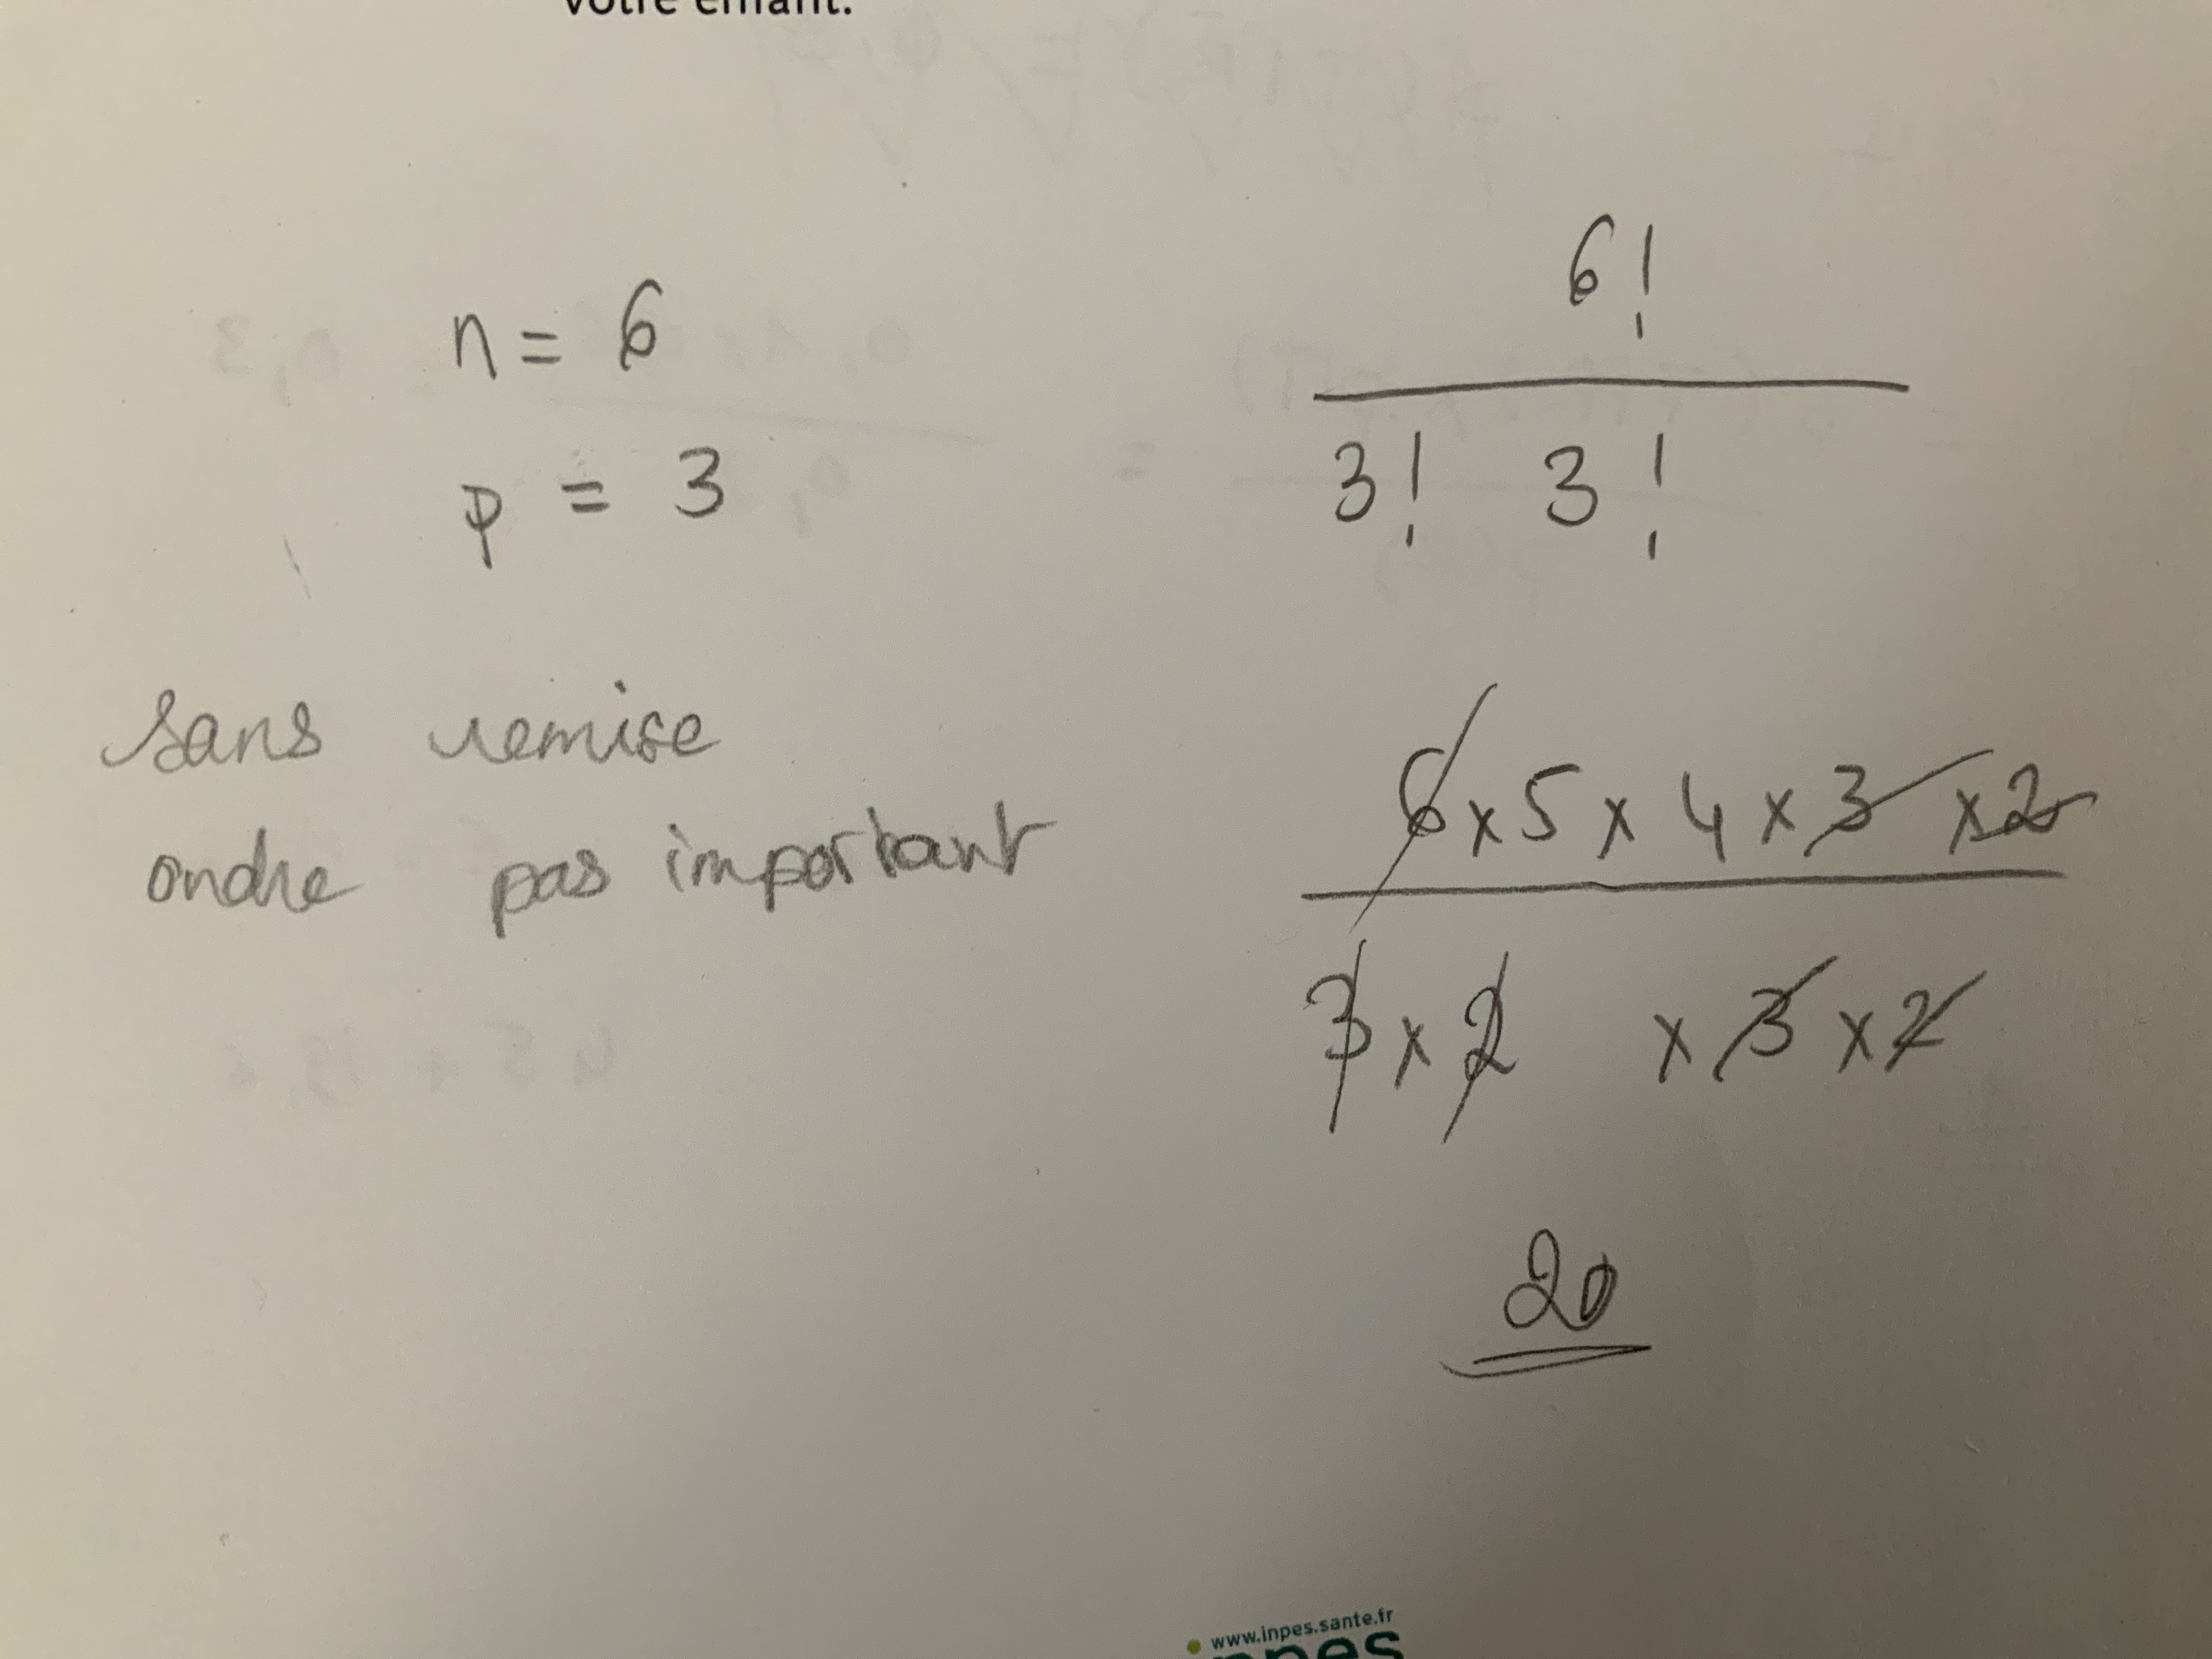 votre enfant.
n = 6
p = 3
sans remise
ordre pas important
6!
3! 3!
6 x 5 x 4 x 3 x 2
3 x 2 x 3 x 2
20
www.inpes.sante.fr
inpes